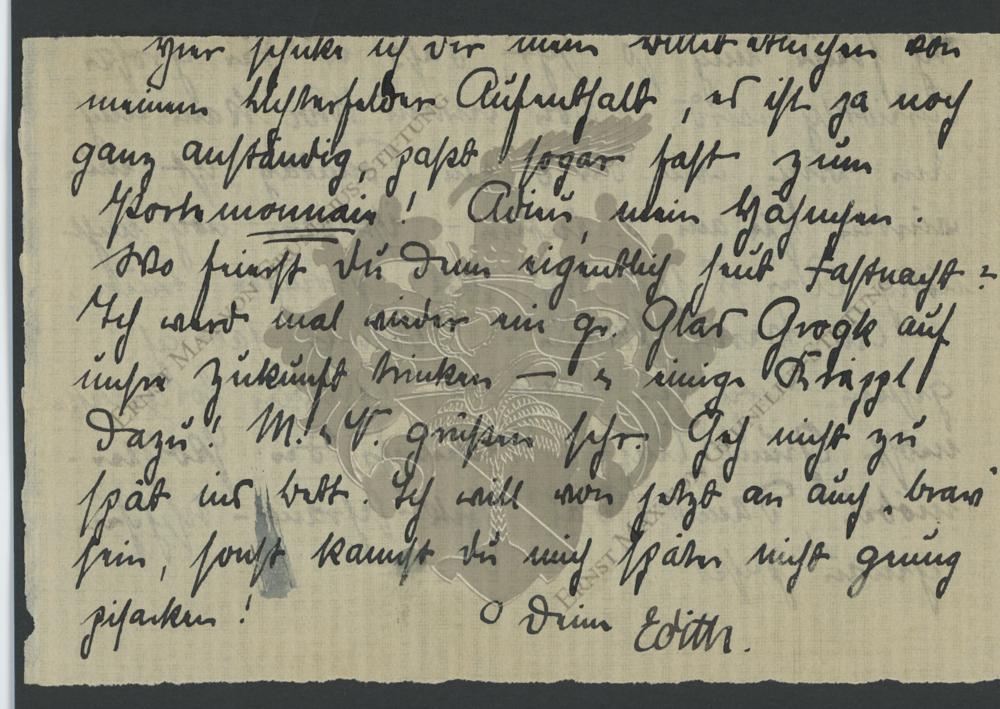 Hier schicke ich dir mein von
meinem Lichterfelder Aufenthalt, es ist ja noch
ganz anständig, paßt sogar fast zum
Portemonnaie! Adieu, mein Hähnchen.
Wo feierst du denn eigentlich heut Fastnacht?
Ich werd mal wieder ein gr. Glas Grogk auf
unsre Zukunft trinken — u einige Kräppl
dazu! M. u. V. grüßen sehr. Geh nicht zu
spät ins Bett. Ich will von jetzt an auch „brav“
sein, sonst kannst du mich später nicht genug
pisacken!
Deine Edith.
ERNST MARTON
ERNST MA